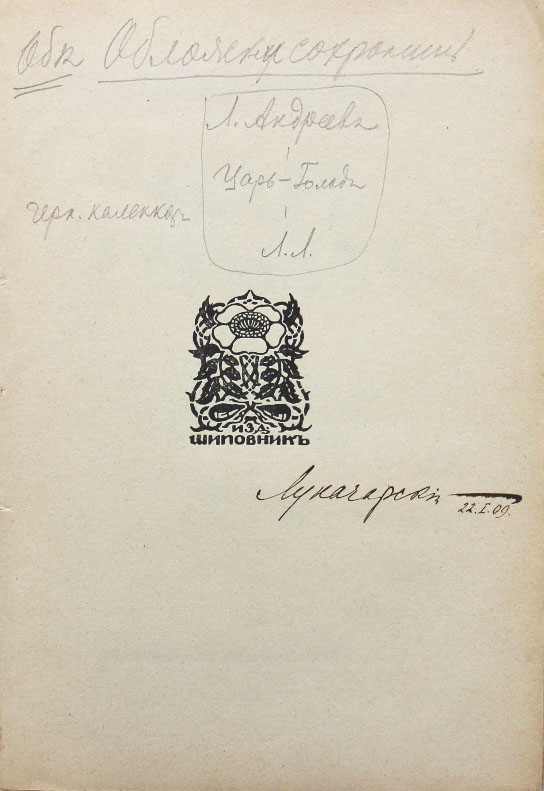 Обк Обложку сохранить
Л. Андреевъ
Царь-Голодъ
черн. каленкоръ
Л.Л.
ИЗД:
ШИПОВНИКЪ
Луначарскій
22.I.09.